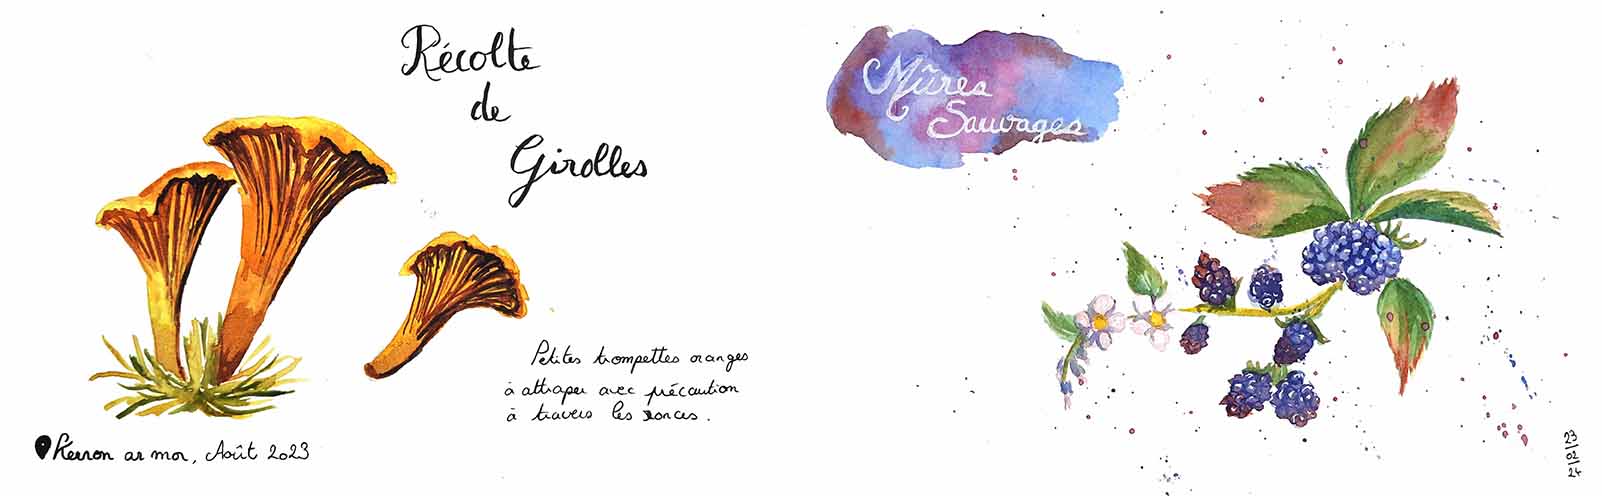 Récolte
de
Girolles
Petites trompettes oranges
à attraper avec précaution
à travers les ronces.
Kerron ar mor, Août 2023
Mûres
Sauvages
23/02/24